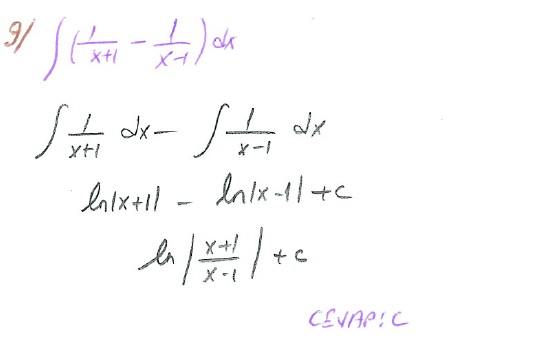 9/ ∫(1/(x+1) - 1/(x-1)) dx
∫ 1/(x+1) dx - ∫ 1/(x-1) dx
ln|x+1| - ln|x-1| + c
ln |(x+1)/(x-1)| + c
CEVAP: C